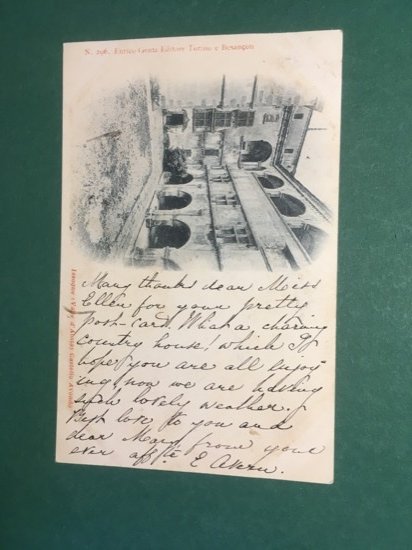 N. 206. Enrico Genta Editore Torino e Besançon
Issogne (Valle d'Aosta) Castello
Many thanks dear Miss
Ellen for your pretty
post-card. What a charming
country house! which I
hope you are all enjoy-
ing, now we are having
such lovely weather.
Best love to you and
dear Mary from your
ever affte E